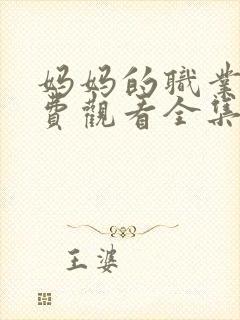 妈妈的職業
費觀看全集
王婆